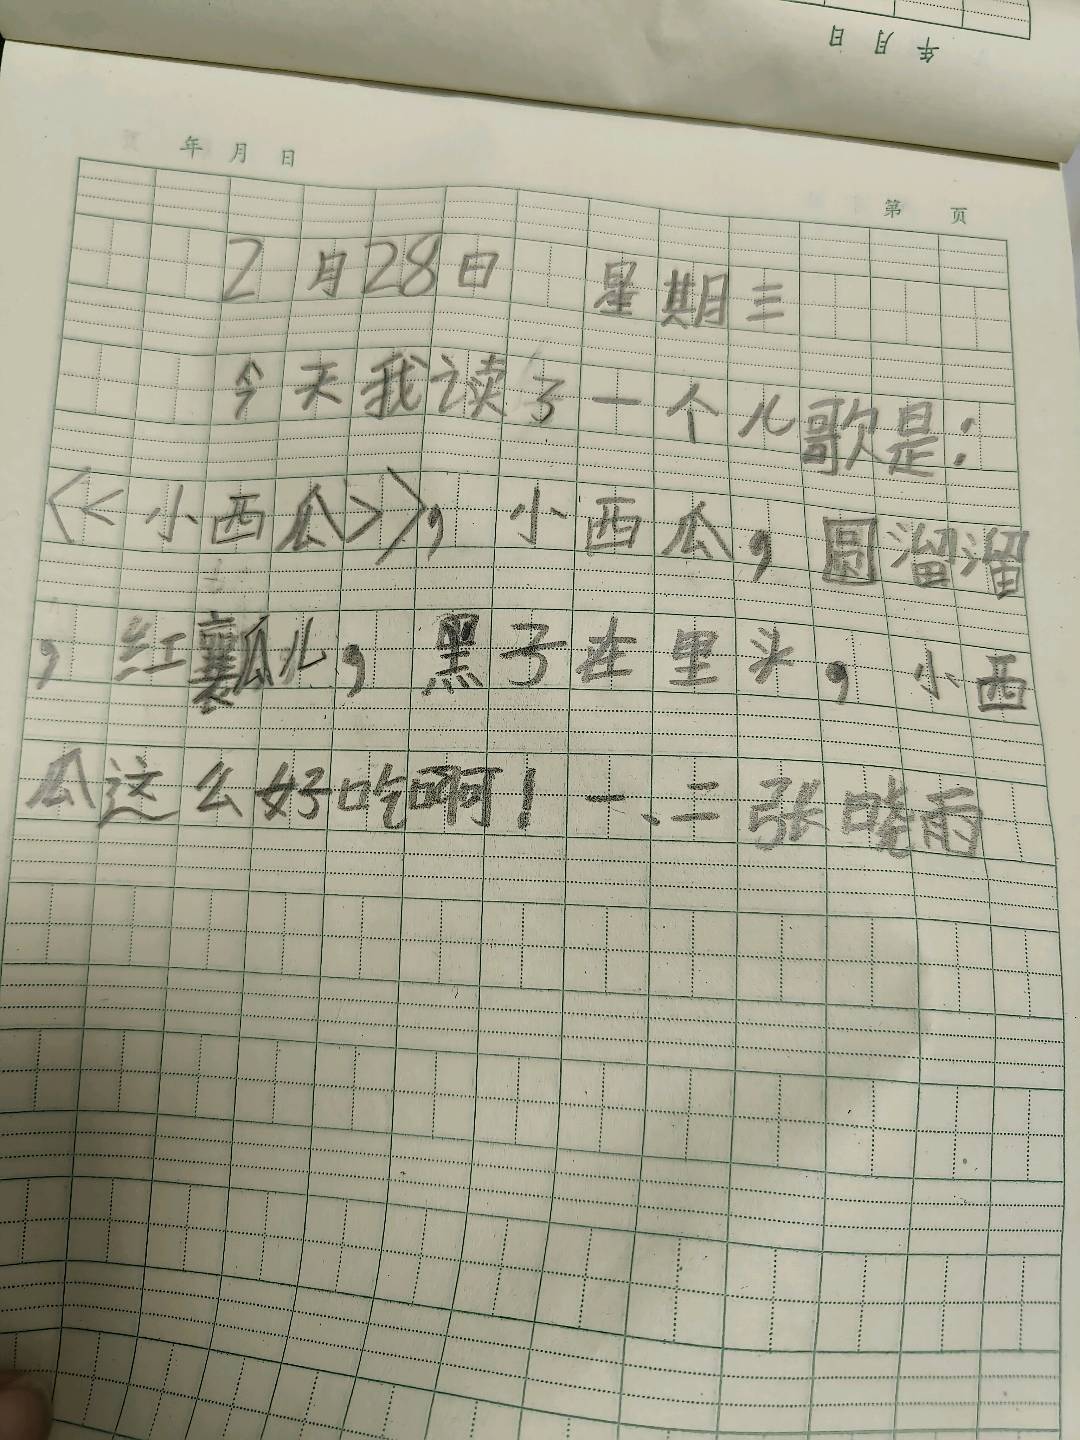 年 月 日
年 月 日
第 页
2月28日 星期三
今天我读了一个儿歌是：
《<小西瓜>》，小西瓜，圆溜溜
，红瓤儿，黑子在里头，小西
瓜这么好吃啊！一、二张晓雨